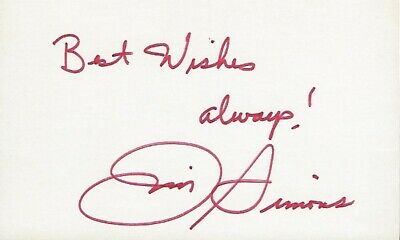 Best Wishes
always!
Jim Simons